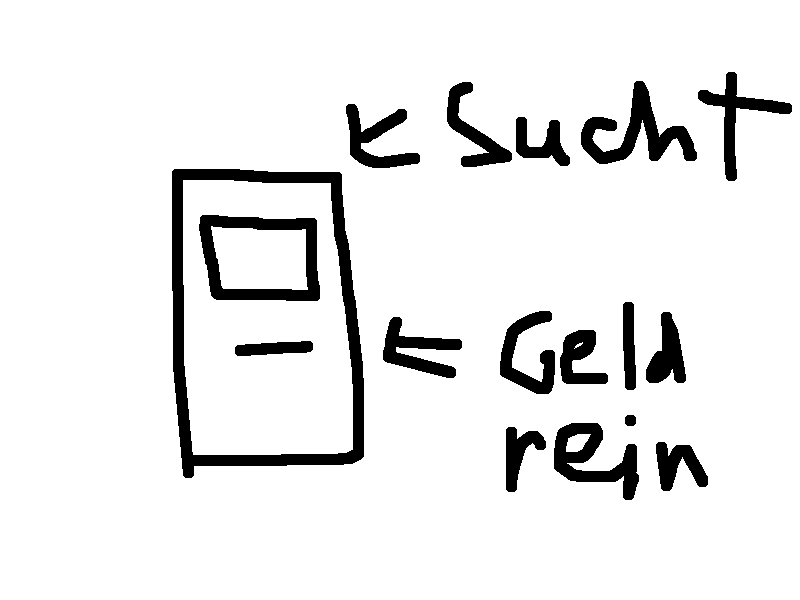 Sucht
Geld
rein